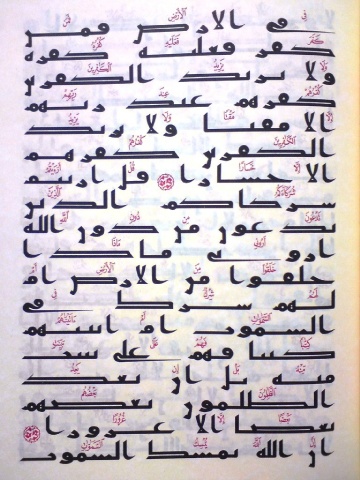 في الارض فمن
كفر فعليه كفره
ولا يزيد الكفرين
كفرهم عند ربهم
الا مقتا ولا يزيد
الكفرين كفرهم
الا خسارا قل اريتم
شركاكم الذين
تدعون من دون الله
اروني ماذا
خلقوا من الارض ام
لهم شرك في
السموت ام اتينهم
كتبا فهم على بينت
منه بل ان يعد
الظلمون بعضهم
بعضا الا غرورا
ان الله يمسك السموت